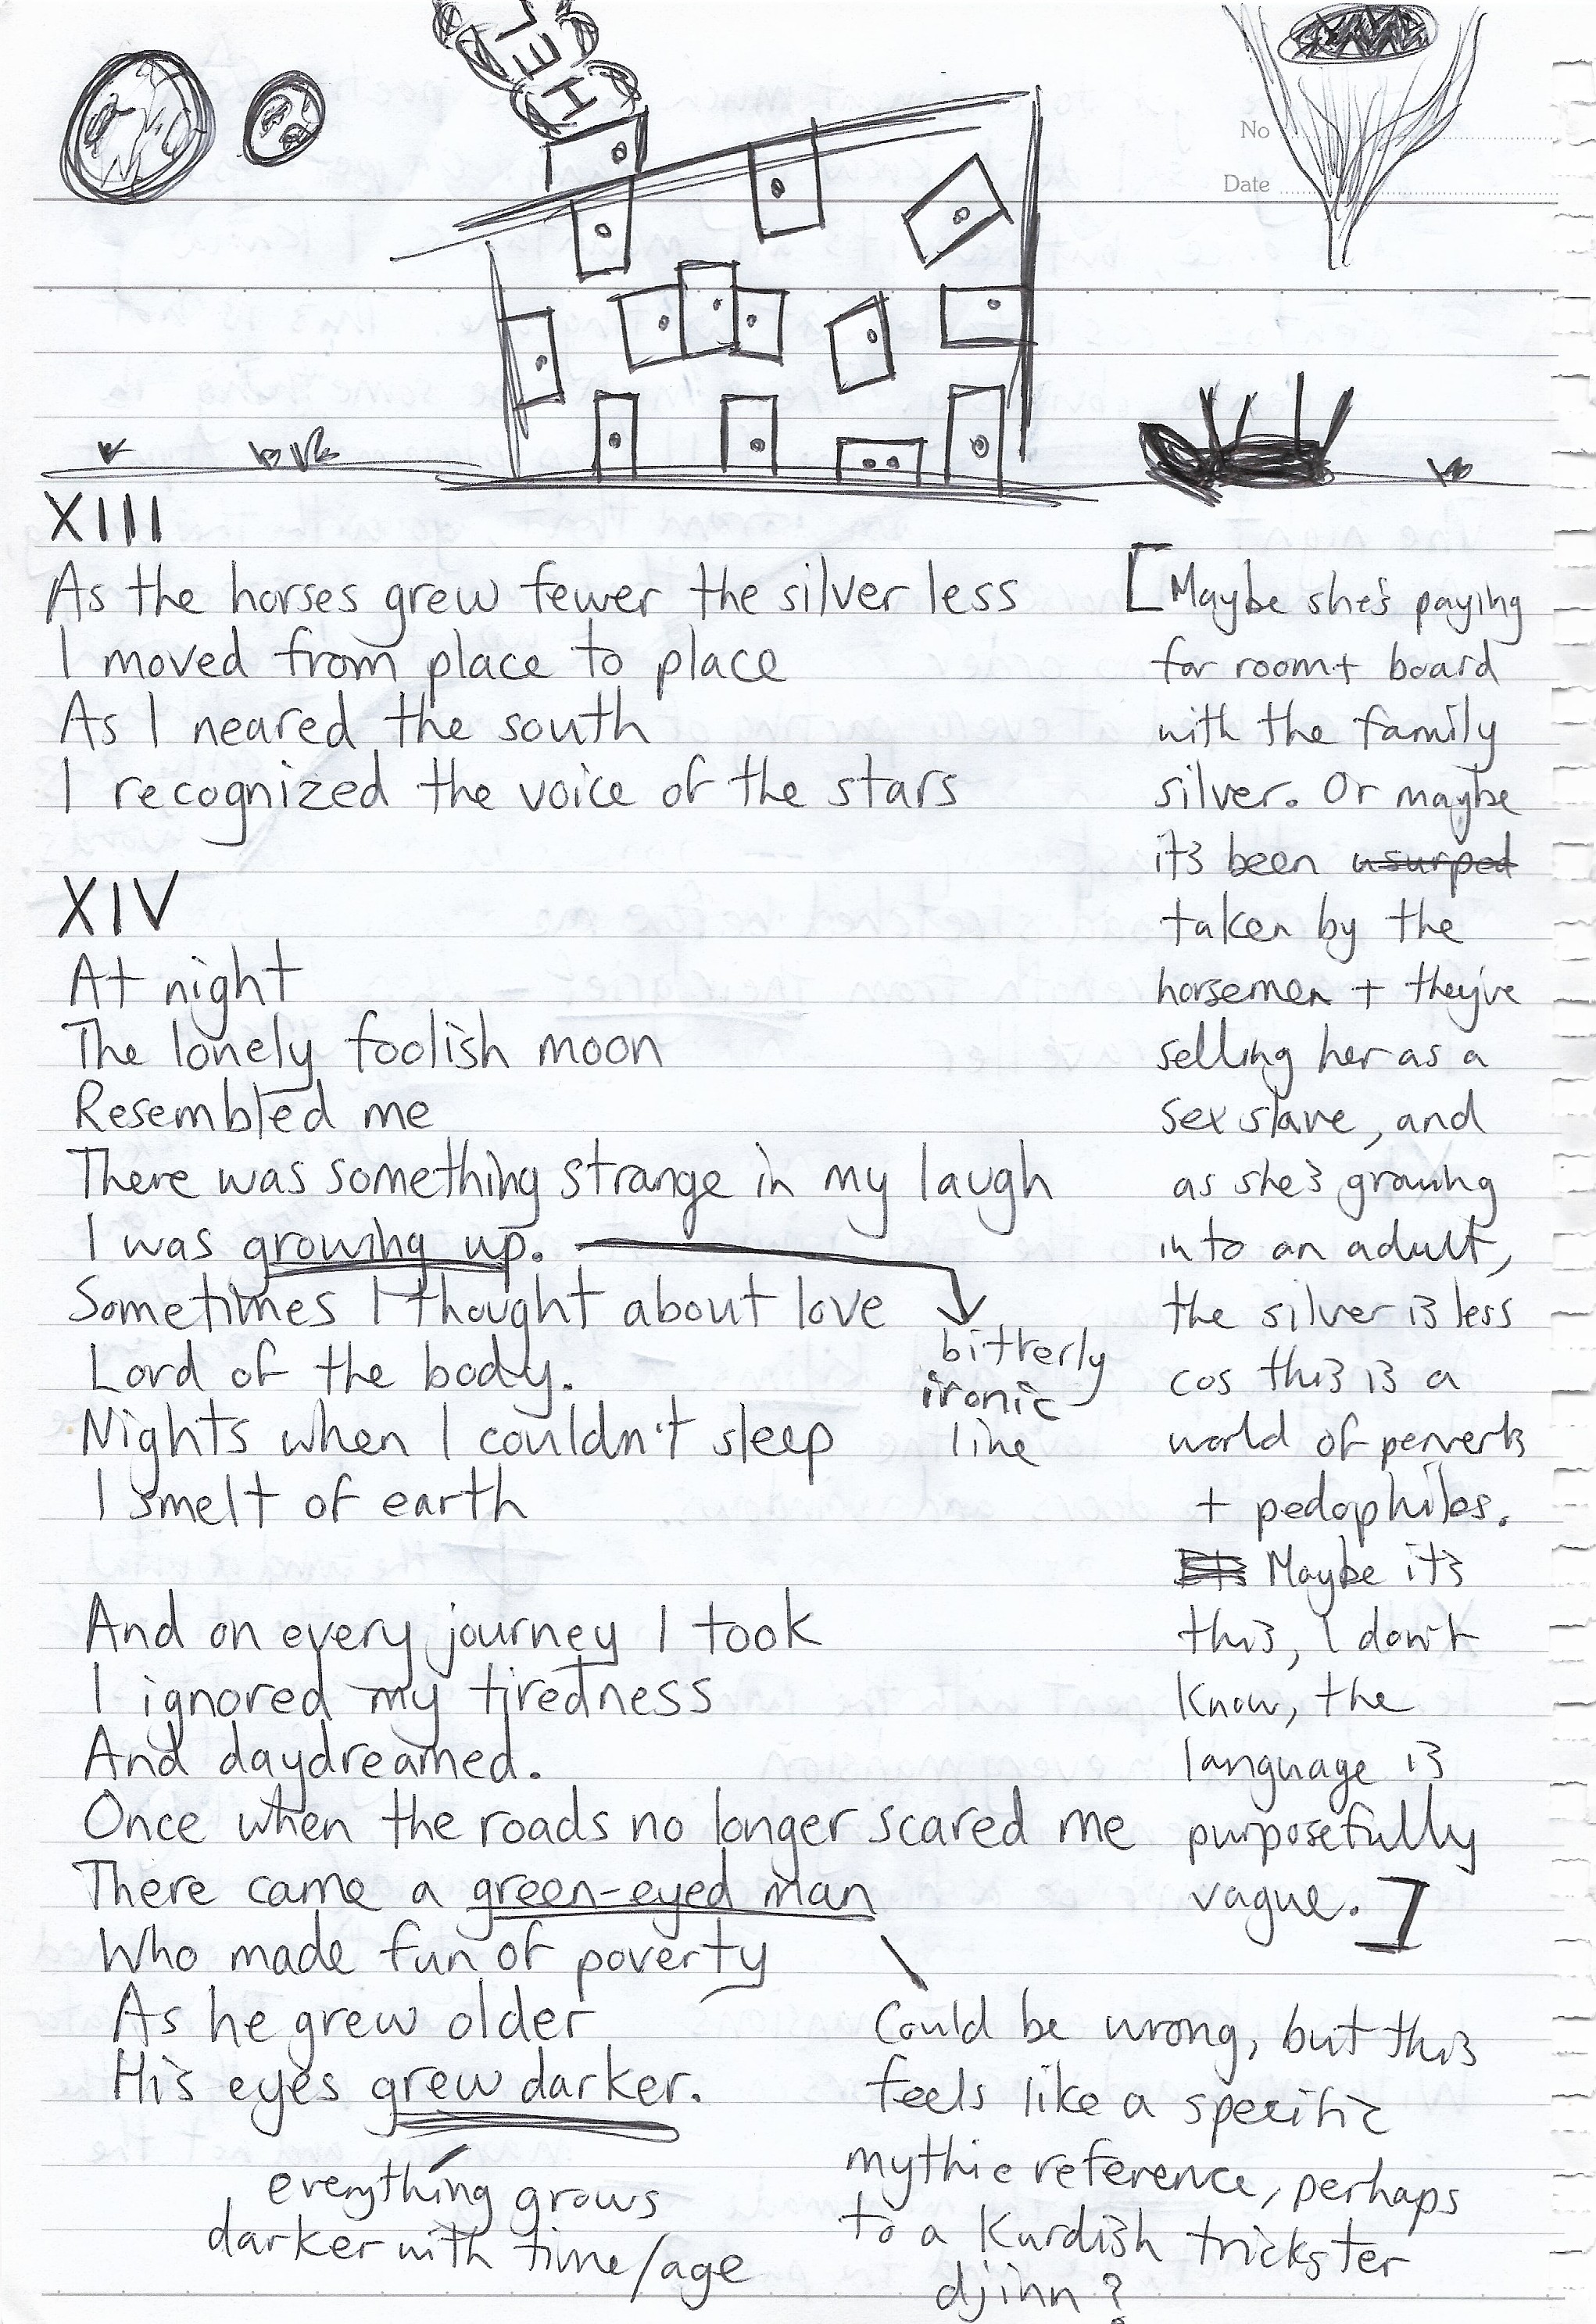 HEL
No
Date
XIII
As the horses grew fewer the silver less
I moved from place to place
As I neared the south
I recognized the voice of the stars
XIV
At night
The lonely foolish moon
Resembled me
There was something strange in my laugh
I was growing up.
Sometimes I thought about love
Lord of the body.
Nights when I couldn't sleep
I smelt of earth
And on every journey I took
I ignored my tiredness
And daydreamed.
Once when the roads no longer scared me
There came a green-eyed man
Who made fun of poverty
As he grew older
His eyes grew darker.
everything grows
darker with time/age
bitterly
ironic
line
[Maybe she's paying
for room + board
with the family
silver. Or maybe
it's been usurped
taken by the
horsemen + they've
selling her as a
sex slave, and
as she's growing
into an adult,
the silver is less
cos this is a
world of perverts
+ pedophiles.
Maybe it's
this, I don't
know, the
language is
purposefully
vague.]
Could be wrong, but this
feels like a specific
mythic reference, perhaps
to a Kurdish trickster
djinn?